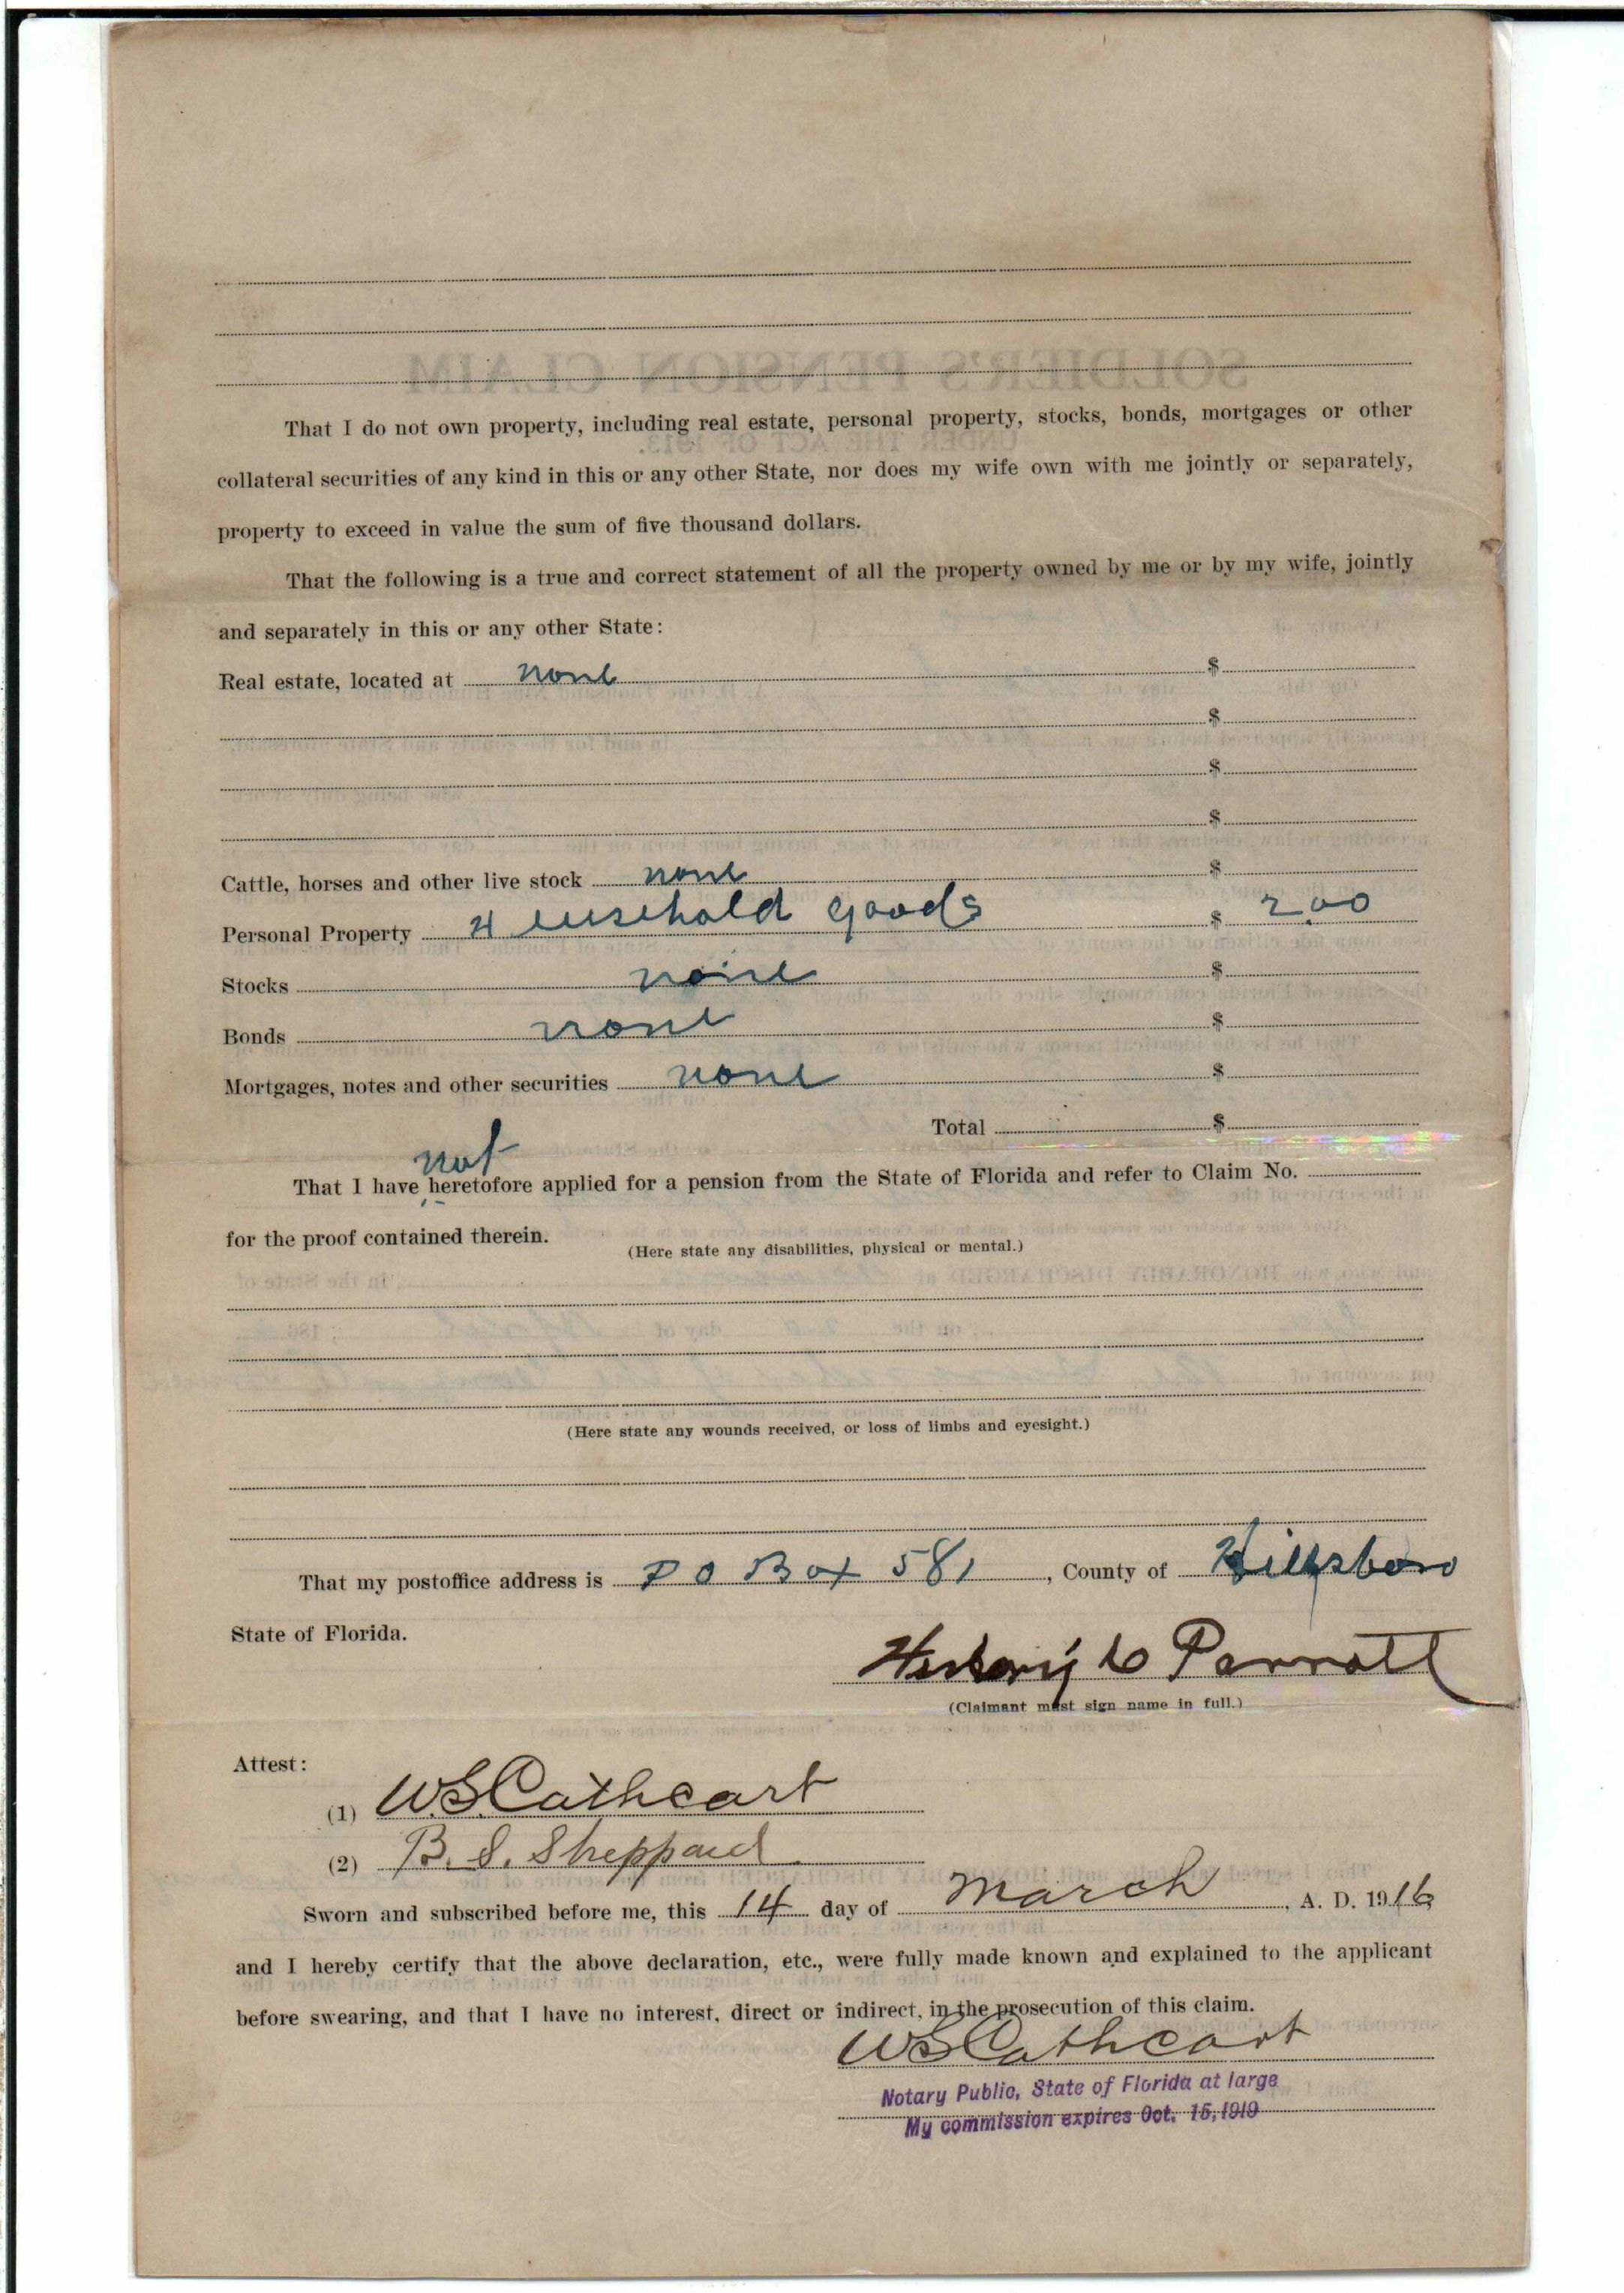 That I do not own property, including real estate, personal property, stocks, bonds, mortgages or other
collateral securities of any kind in this or any other State, nor does my wife own with me jointly or separately,
property to exceed in value the sum of five thousand dollars.
That the following is a true and correct statement of all the property owned by me or by my wife, jointly
and separately in this or any other State:
Real estate, located at none $
$
$
$
Cattle, horses and other live stock none $
Personal Property Household goods $ 200
Stocks none $
Bonds none $
Mortgages, notes and other securities none $
Total $
not
That I have heretofore applied for a pension from the State of Florida and refer to Claim No.
for the proof contained therein.
(Here state any disabilities, physical or mental.)
(Here state any wounds received, or loss of limbs and eyesight.)
That my postoffice address is P O Box 581, County of Hillsboro
State of Florida.
Parratt
(Claimant must sign name in full.)
Attest:
(1) W.S. Cathcart
(2) B. S. Sheppard
Sworn and subscribed before me, this 14 day of March, A. D. 1916
and I hereby certify that the above declaration, etc., were fully made known and explained to the applicant
before swearing, and that I have no interest, direct or indirect, in the prosecution of this claim.
WS Cathcart
Notary Public, State of Florida at large
My commission expires Oct. 15, 1919